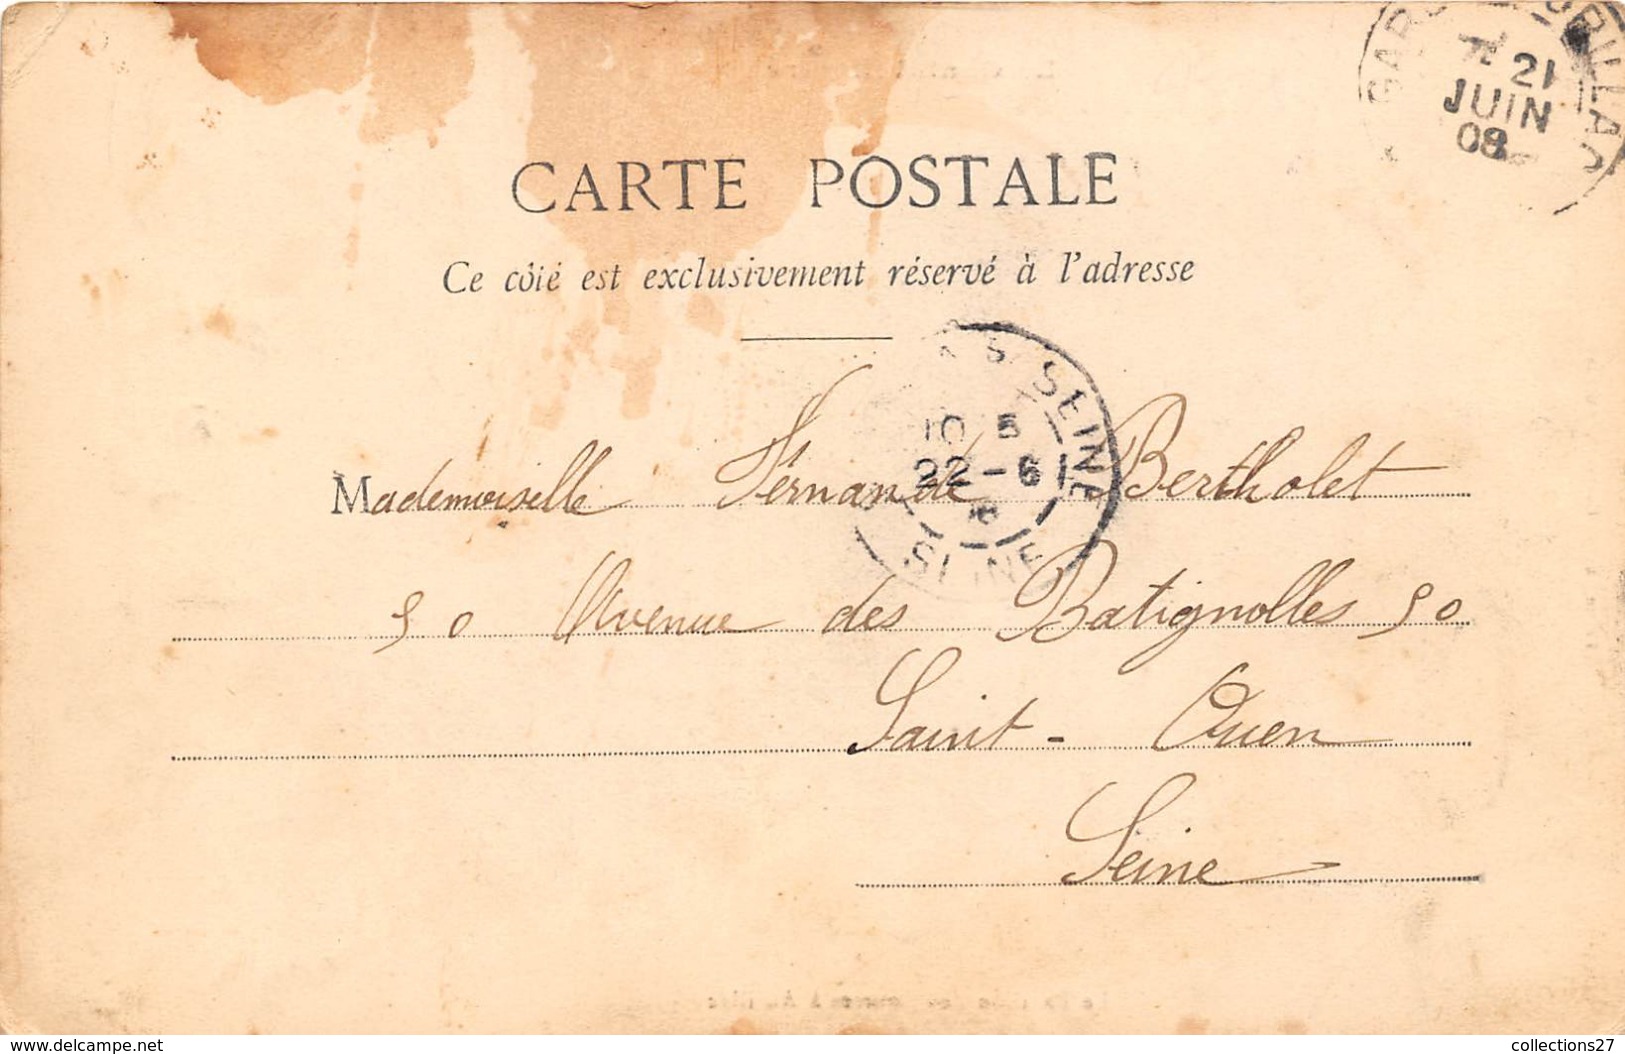 21
JUIN
08
CARTE POSTALE
Ce côté est exclusivement réservé à l'adresse
SEINE
10 5
22-6
SEINE
Mademoiselle Fernande Bertholet
50 Avenue des Batignolles 50
Saint-Ouen
Seine
www.delcampe.net
collections27